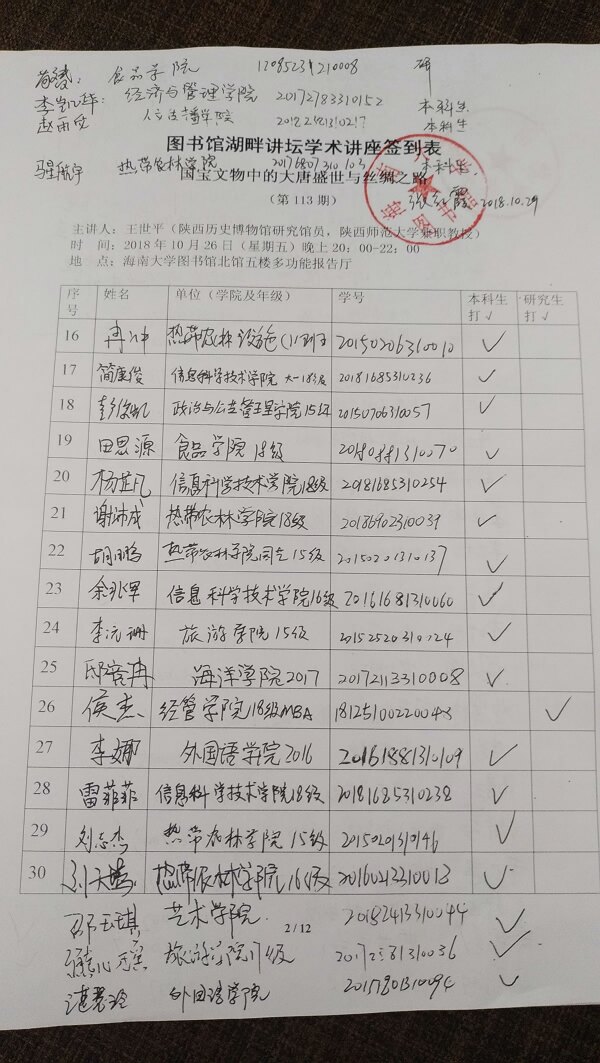 食品学院 12085231210008 研
李凯华: 经济与管理学院 20172783310152 本科生
人文传播学院 本科生
图书馆湖畔讲坛学术讲座签到表
马星航宇 热带农林学院 20176807310103 本科生
国宝文物中的大唐盛世与丝绸之路
(第 113 期) 2018.10.29
主讲人：王世平（陕西历史博物馆研究馆员，陕西师范大学兼职教授）
时 间：2018 年 10 月 26 日（星期五）晚上 20：00-22：00
地 点：海南大学图书馆北馆五楼多功能报告厅
序号 姓名 单位（学院及年级） 学号 本科生打√ 研究生打√
16 冉冲 热带农林 20150206310010 √
17 简唐俊 信息科学技术学院 大一18级 20181685310236 √
18 彭俊凯 政治与公共管理学院15级 20150706310057 √
19 田思源 食品学院 18级 20180881310070 √
20 杨芷凡 信息科学技术学院18级 20181685310254 √
21 谢沛成 热带农林学院18级 20186902310039 √
22 胡鹏 热带农林学院园艺15级 20150201310137 √
23 余兆军 信息科学技术学院16级 20161681310060 √
24 李沅珊 旅游学院15级 20152520310124 √
25 邸容冉 海洋学院2017 20172113310008 √
26 侯杰 经管学院18级MBA √
27 李娜 外国语学院2016 20161881310109 √
28 雷菲菲 信息科学技术学院18级 20181685310238 √
29 刘志杰 热带农林学院15级 20150201310146 √
30 热带农林学院16级 20160213310013 √
邵玉琪 艺术学院 20182413310044 √
2/12
旅游学院17级 √
湛慧玲 外国语学院 20151801310094 √